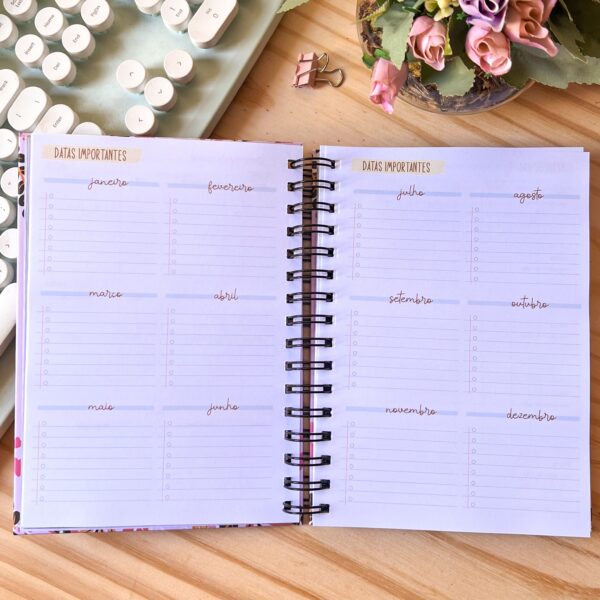 DATAS IMPORTANTES
janeiro fevereiro
março abril
maio junho
DATAS IMPORTANTES
julho agosto
setembro outubro
novembro dezembro
Insert
Home